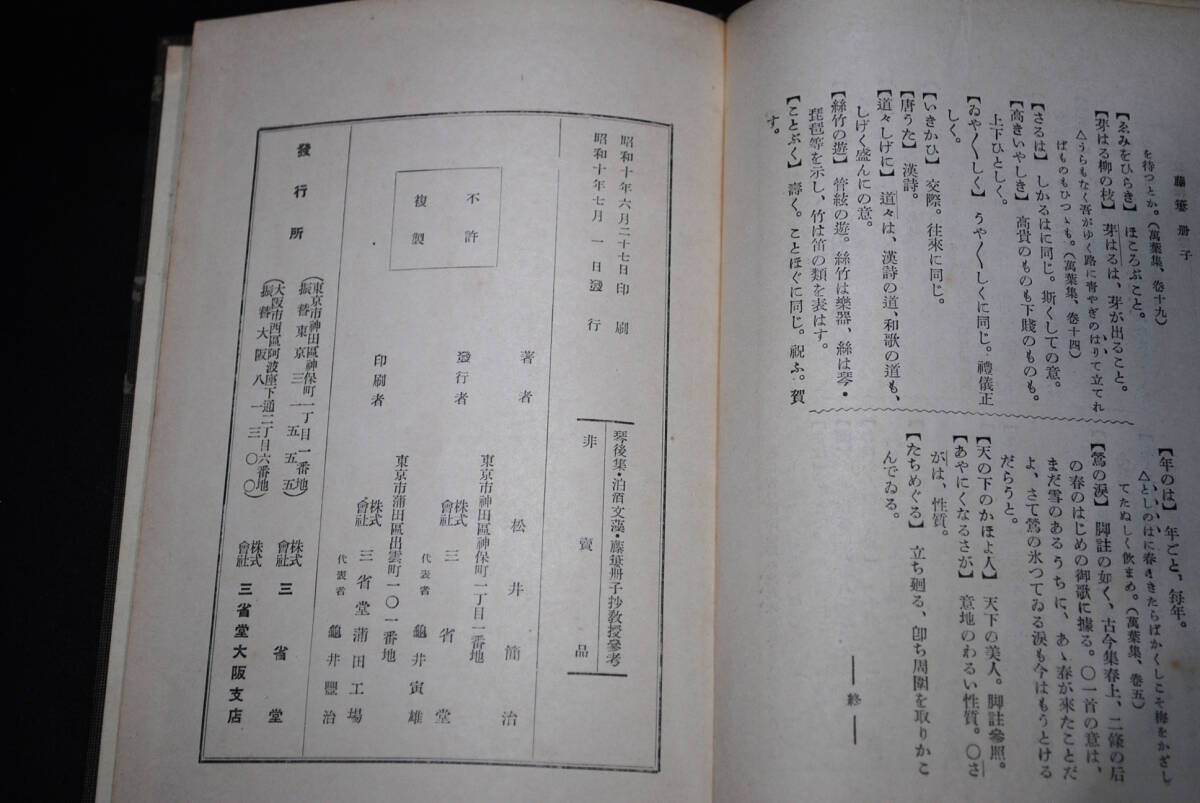 藤簍册子
を待つとか。(萬葉集、卷十九)
【ゑみをひらき】 ほころぶこと。
【芽はる柳の枝】 芽はるは、芽が出ること。
△うらもなく吾がゆく路に靑やぎのはりて立てれ
ばものもひつゝも。(萬葉集、卷十四)
【さるは】 しかるはに同じ。斯くしての意。
【高きいやしき】 高貴のものも下賤のものも。
上下ひとしく。
【ゐや〳〵しく】 うや〳〵しくに同じ。禮儀正
しく。
【いきかひ】 交際。往來に同じ。
【唐うた】 漢詩。
【道々しげに】 道々は、漢詩の道、和歌の道も、
しげく盛んにの意。
【絲竹の遊】 管絃の遊。絲竹は樂器、絲は琴・
琵琶等を示し、竹は笛の類を表はす。
【ことぶく】 壽く。ことほぐに同じ。祝ふ。賀
す。
【年のは】 年ごと、每年。
△としのはに春きたらばかくしこそ梅をかざし
てたぬしく飮まめ。(萬葉集、卷五)
【鶯の淚】 脚註の如く、古今集春上、二條の后
の春のはじめの御歌に據る。〇一首の意は、
まだ雪のあるうちに、あゝ春が來たことだ
よ、さて鶯の氷つてゐる淚も今はもうとける
だらうと。
【天の下のかほよ人】 天下の美人。脚註參照。
【あやにくなるさが】 意地のわるい性質。〇さ
がは、性質。
【たちめぐる】 立ち廻る、卽ち周圍を取りかこ
んでゐる。
――終――
昭和十年六月二十七日印刷
昭和十年七月一日發行
琴後集・泊洦文藻・藤簍册子抄敎授參考
非賣品
不許
複製
著者 松井簡治
東京市神田區神保町一丁目一番地
發行者 株式會社 三省堂
代表者 龜井寅雄
東京市蒲田區出雲町一〇一番地
印刷者 株式會社 三省堂蒲田工場
代表者 龜井豐治
發行所
(東京市神田區神保町一丁目一番地
振替東京三一五五五) 株式會社 三省堂
(大阪市西區阿波座下通二丁目六番地
振替大阪八一三〇〇) 株式會社 三省堂大阪支店